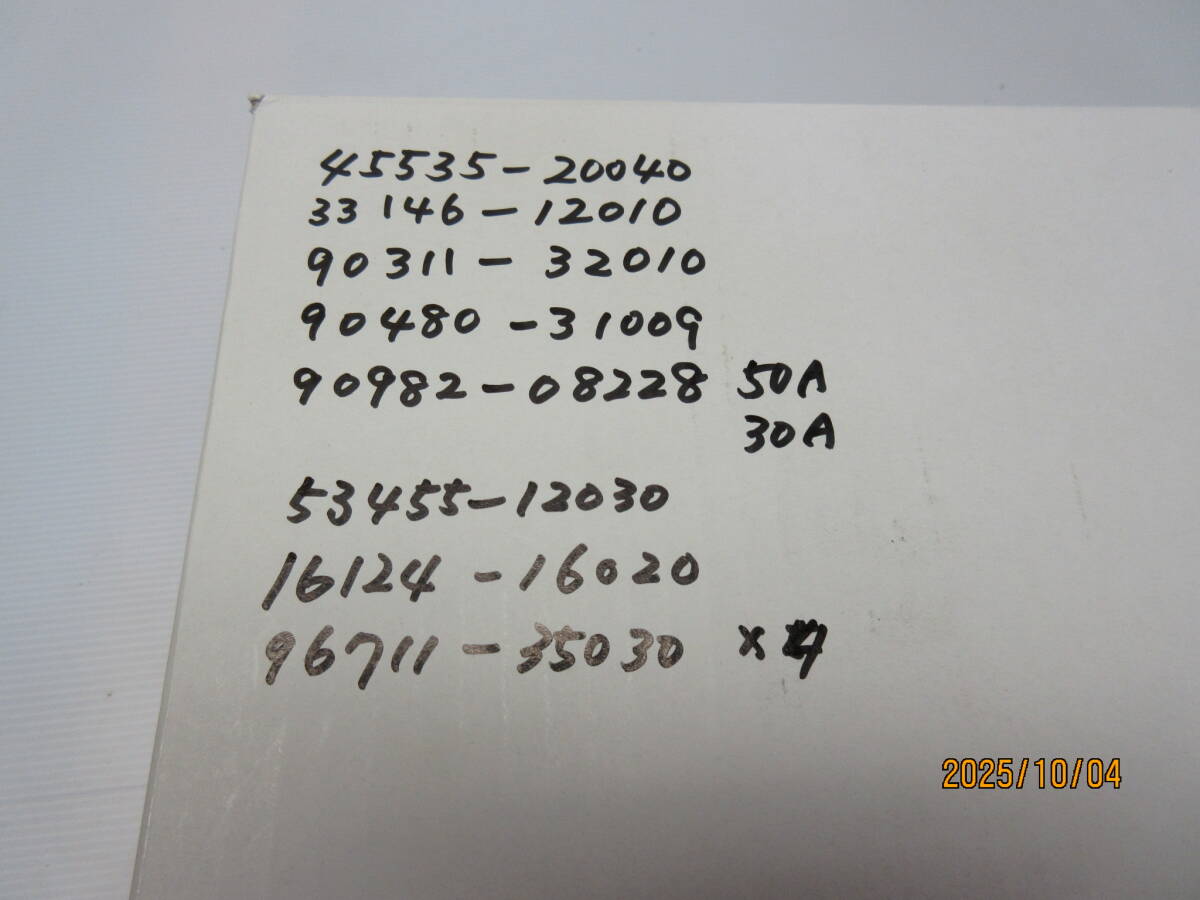 45535-20040
33146-12010
90311-32010
90480-31009
90982-08228 50A
30A
53455-12030
16124-16020
96711-35030 ×4
2025/10/04